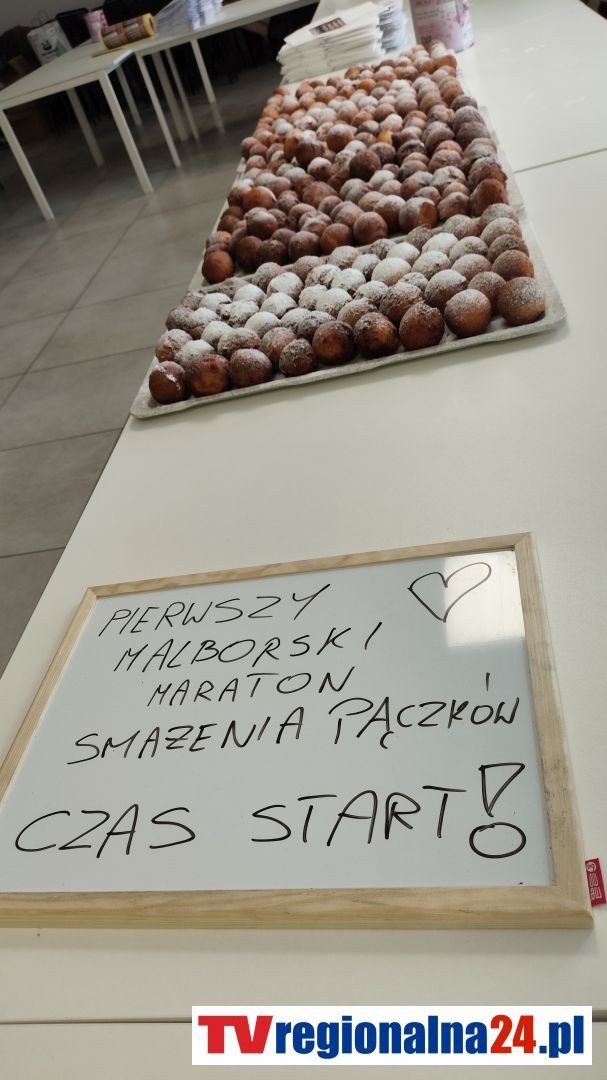 PIERWSZY
MALBORSKI
MARATON
SMAŻENIA PĄCZKÓW
CZAS START!
TVregionalna24.pl